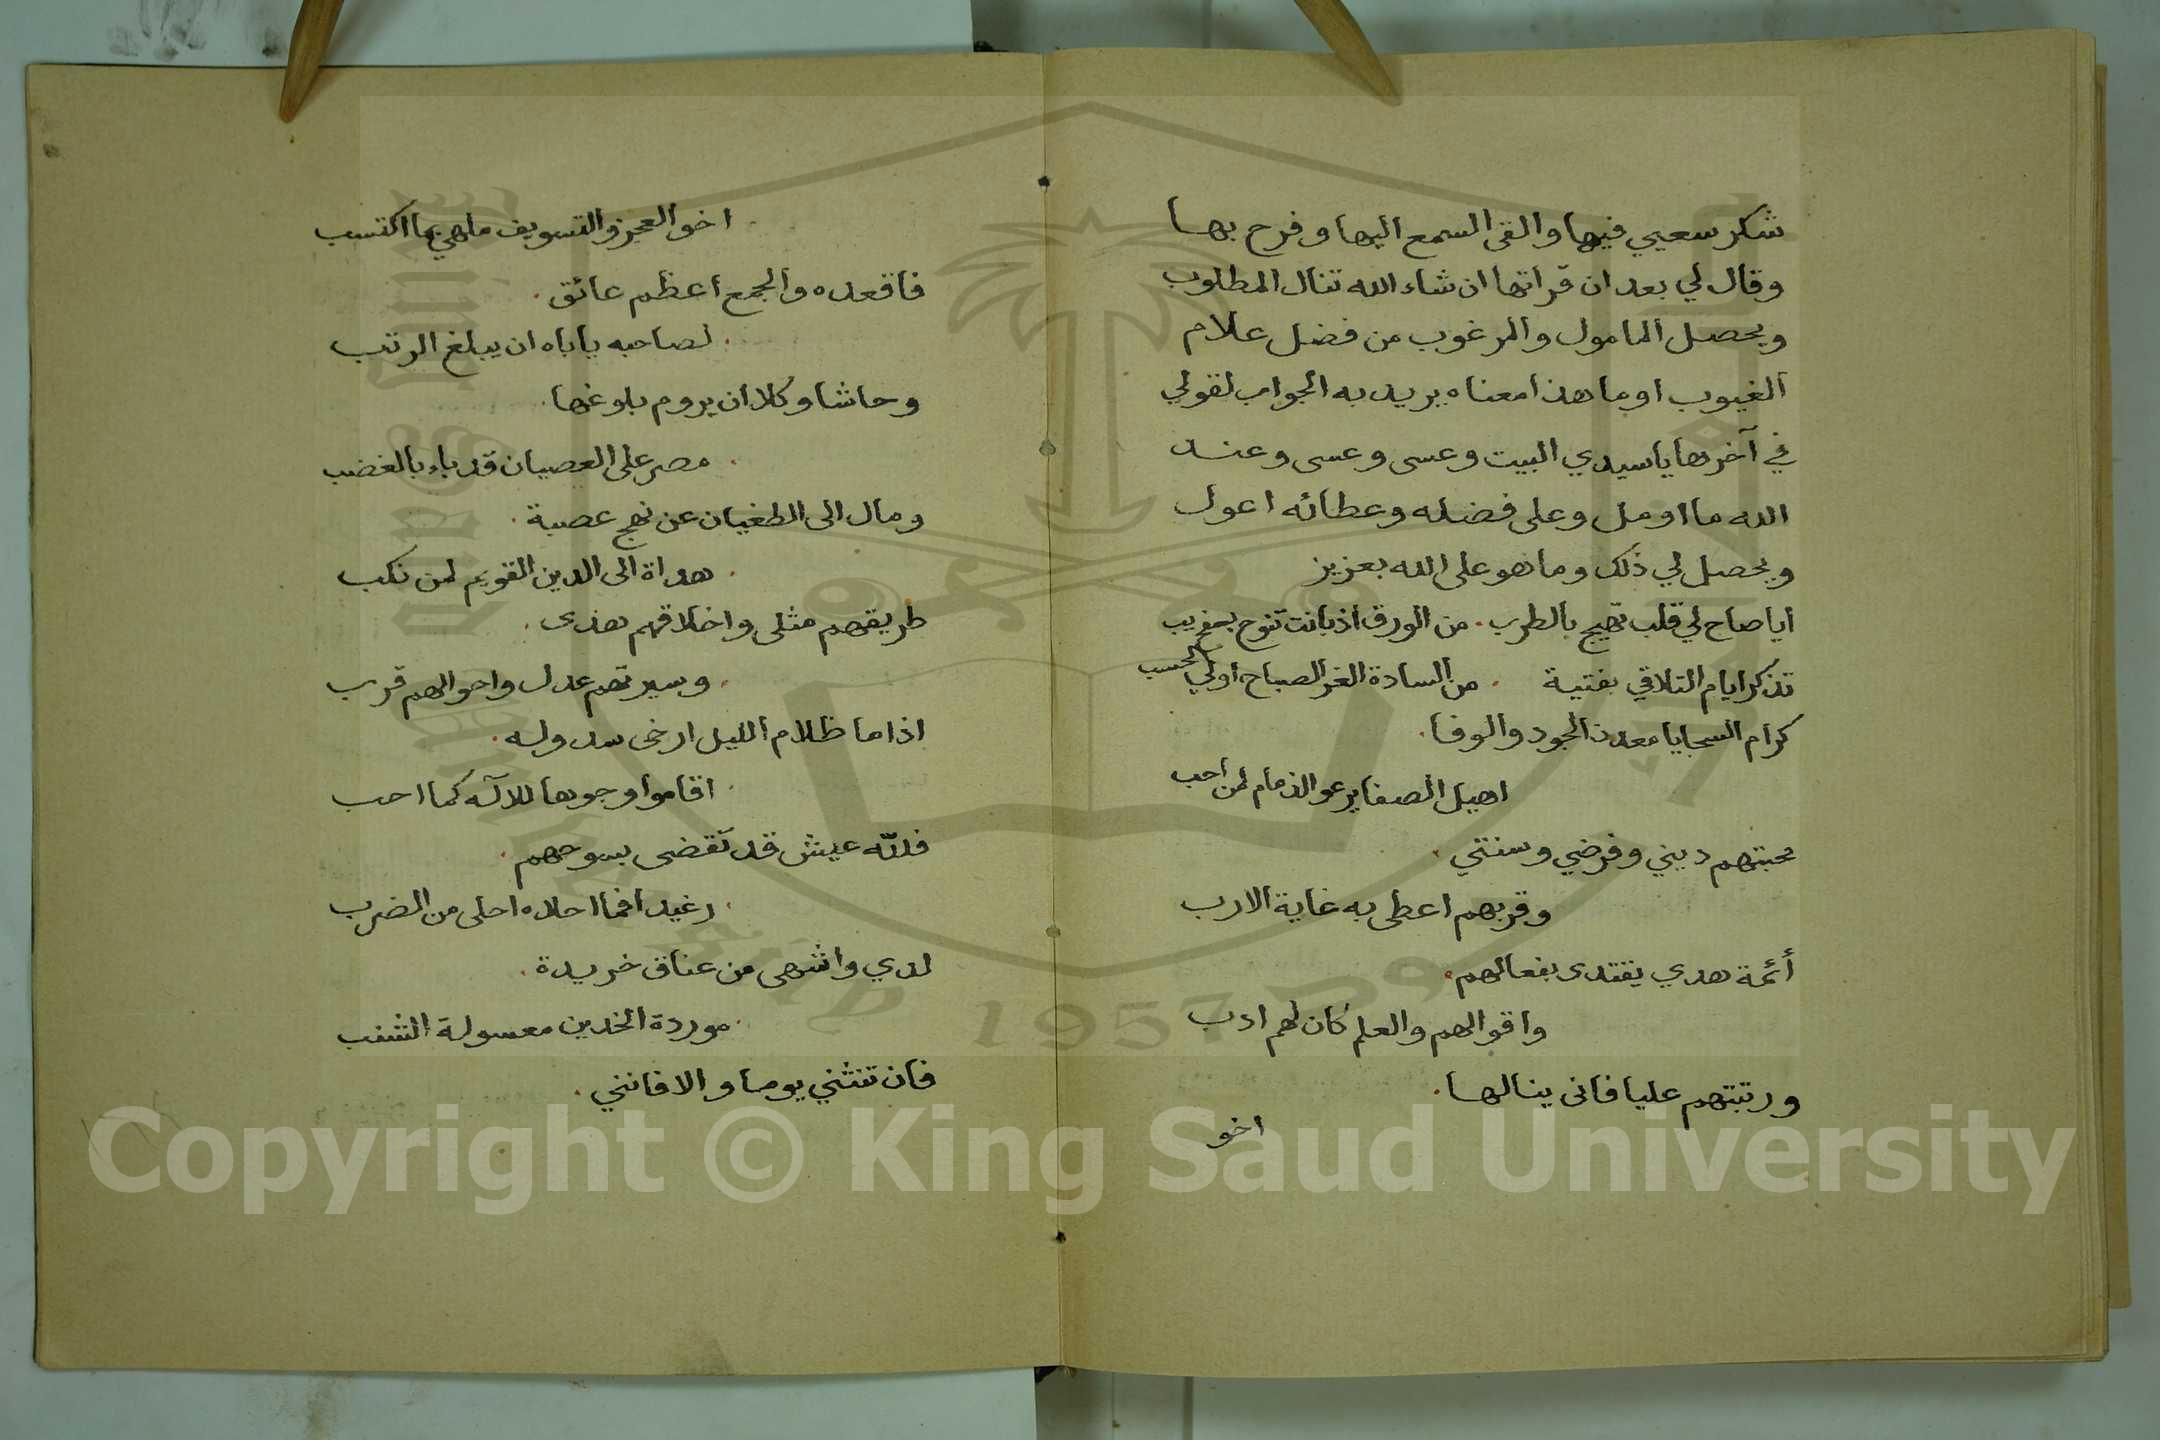 شكر سعيي فيها والقى السمع اليها وفرح بها
وقال لي بعد ان قراتها ان شاء الله تنال المطلوب
ويحصل المامول والمرغوب من فضل علام
الغيوب او ما هذا معناه يريد به الجواب لقولي
في آخرها يا سيدي البيت وعسى وعسى وعند
الله ما اومل وعلى فضله وعطائه اعول
ويحصل لي ذلك وما هو على الله بعزيز
ايا صاح لي قلب تهيج بالطرب . من الورق اذ بانت تنوح
تذكر ايام التلاقي بفتية . من السادة الغر الصباح اولي الحسب
كرام السجايا معدن الجود والوفا .
اهيل الصفا يرعو الذمام لمن احب
محبتهم ديني وفرضي وسنتي .
وقربهم اعطى به غاية الارب
أئمة هدي يقتدى بفعالهم .
واقوالهم والعلم كان لهم ادب
ورتبتهم عليا فانى ينالها .
اخو
. اخو العجز والتسويف ماهي بما اكتسب
فاقعده والجمع اعظم عائق .
. لصاحبه ياباه ان يبلغ الرتب
وحاشا وكلا ان يروم بلوغها .
. مصر على العصيان قد باء بالغضب
ومال الى الطغيان عن نهج عصبة .
. هداة الى الدين القويم لمن نكب
طريقهم مثلى واخلاقهم هدى .
. وسيرتهم عدل واحوالهم قرب
اذا ما ظلام الليل ارخى سدوله .
. اقاموا وجوها للاله كما احب
فلله عيش قد تقضى بسوحهم .
. رغيدا فما احلاه احلى من الضرب
لدي واشهى من عناق خريدة .
. موردة الخدين معسولة الشنب
فان تنثني يوما والا فانني .
Copyright © King Saud University
1957